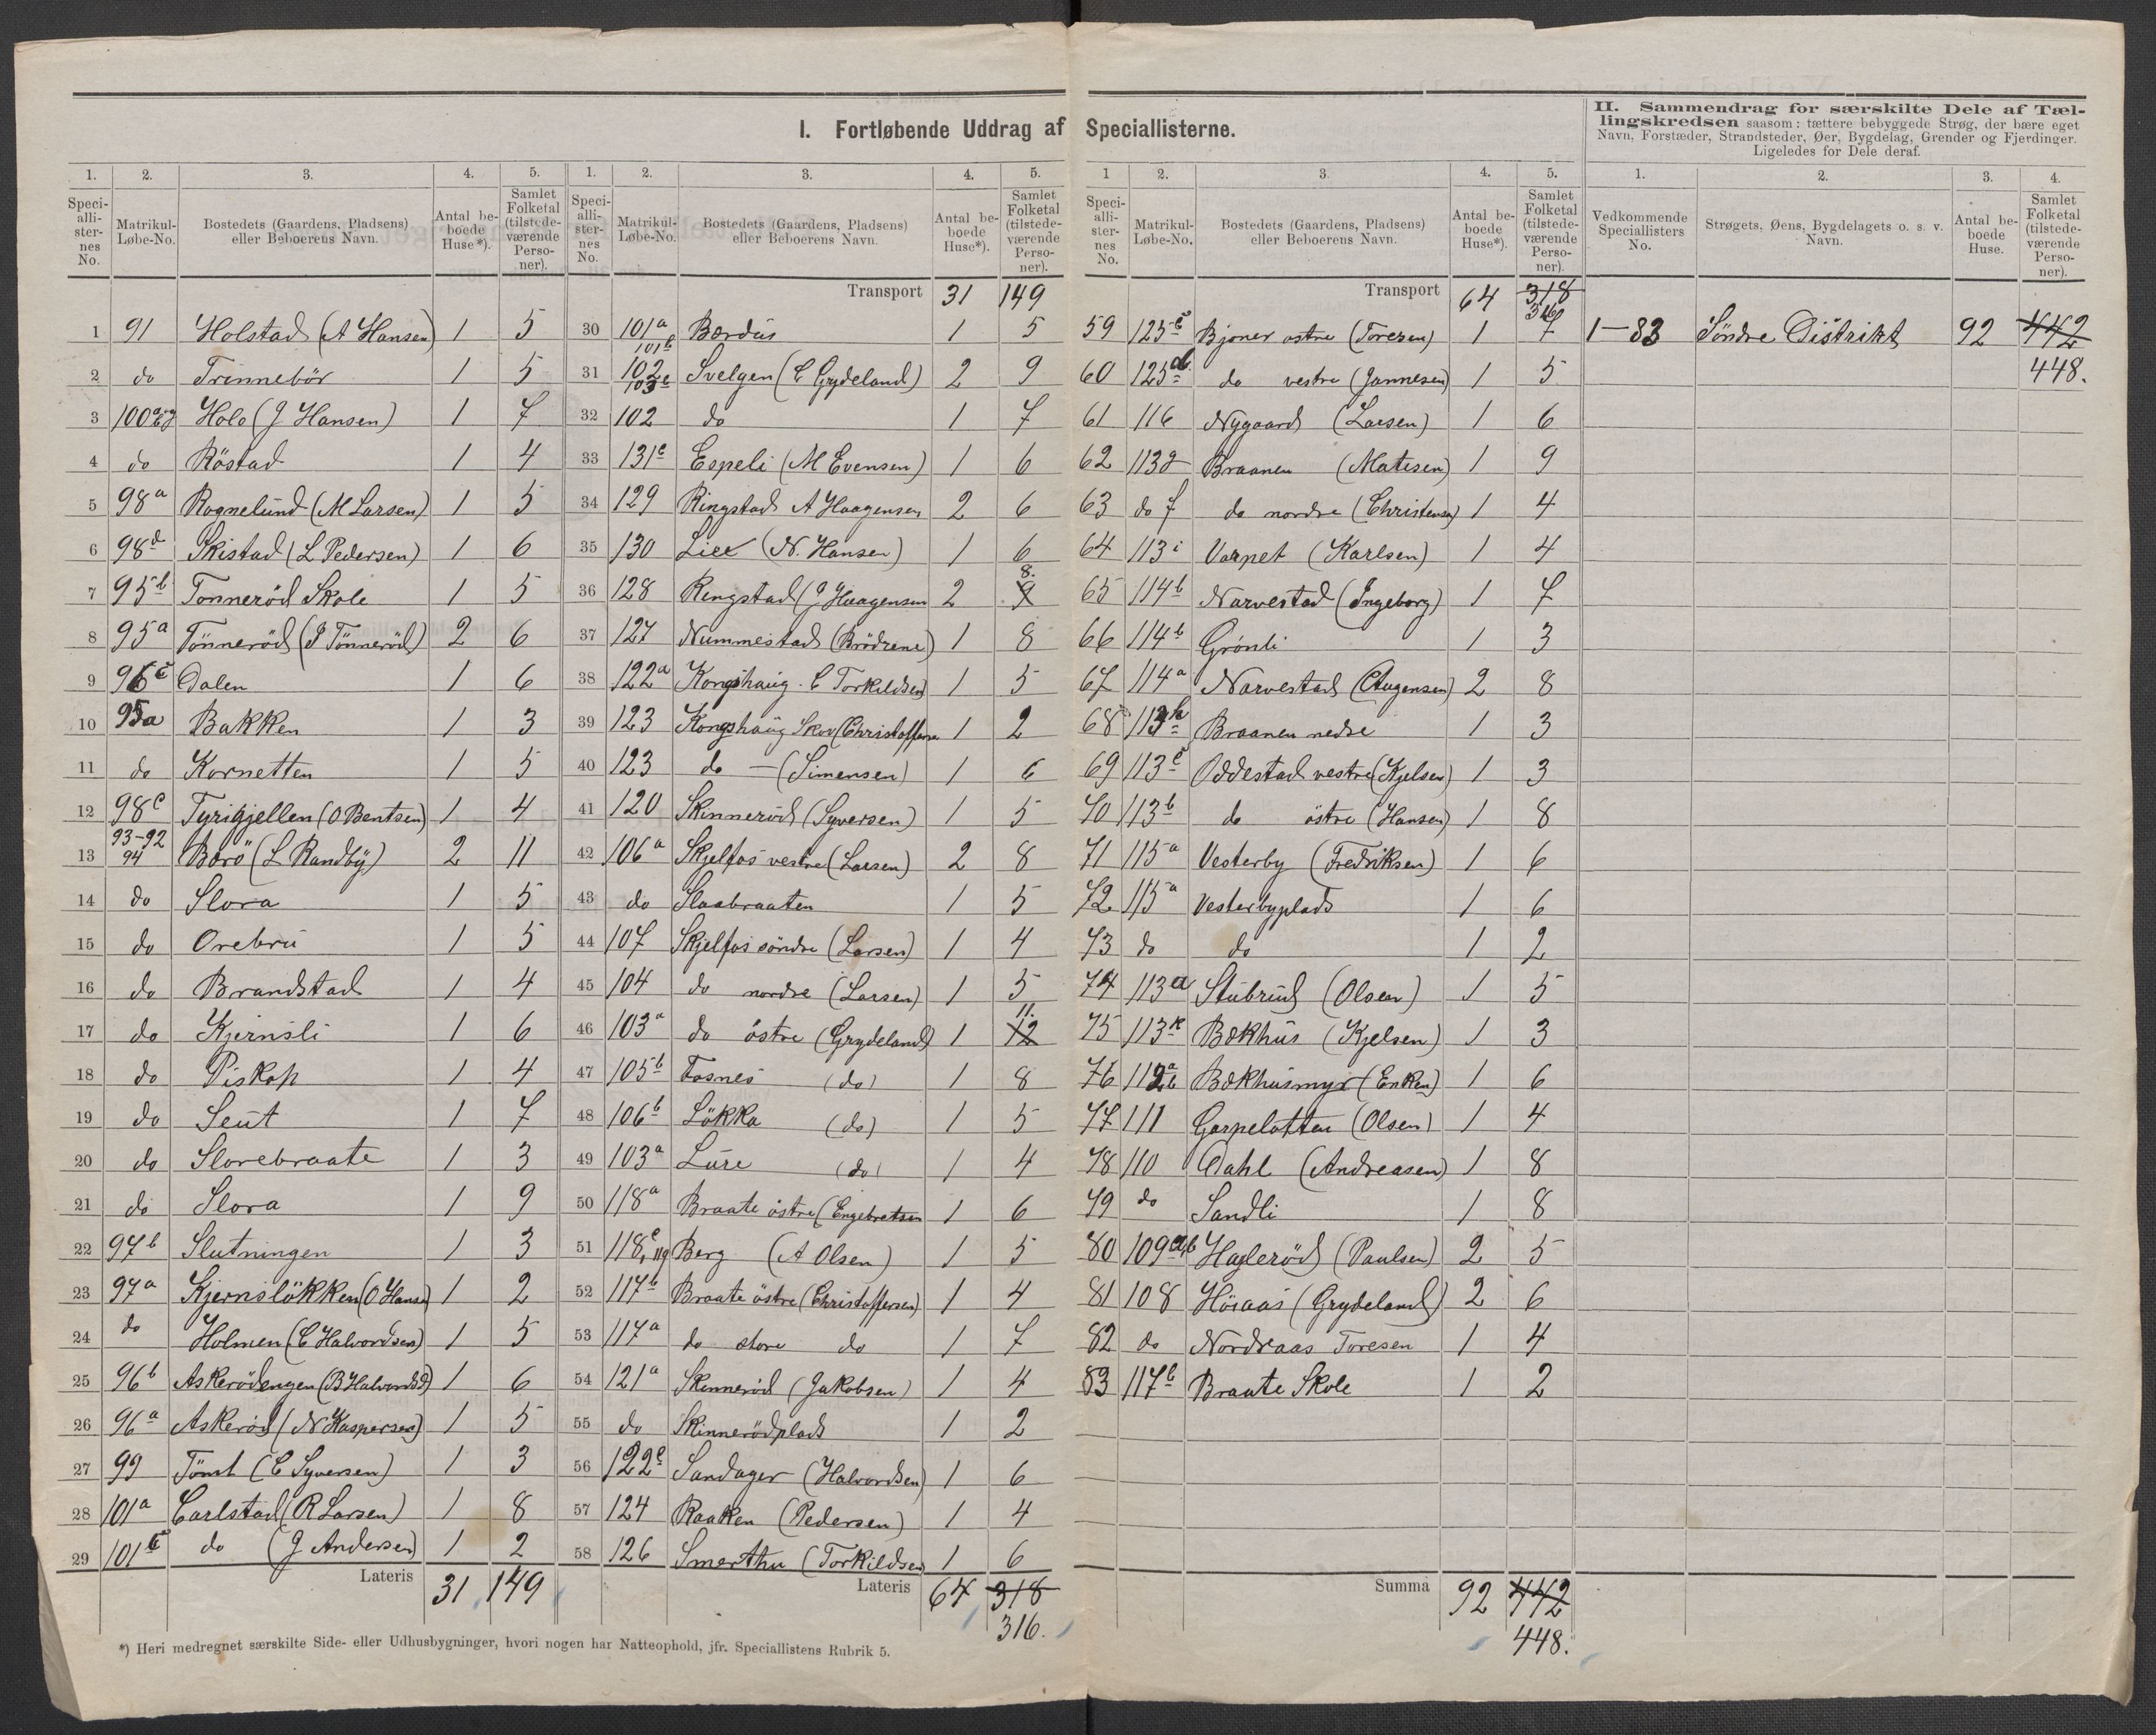 I. Fortløbende Uddrag af Speciallisterne.
II. Sammendrag for særskilte Dele af Tæl-
lingskredsen saasom: tættere bebyggede Strøg, der bære eget
Navn, Forstæder, Strandsteder, Øer, Bygdelag, Grender og Fjerdinger.
Ligeledes for Dele deraf.
1. 2. 3. 4. 5.
Speci-alli-ster-nes No. Matrikul-Løbe-No. Bostedets (Gaardens, Pladsens) eller Beboerens Navn. Antal be-boede Huse*). Samlet Folketal (tilstede-værende Perso-ner).
1 91 Holstad (A Hansen) 1 5
2 do Trinnebör 1 5
3 100 Holo (J Hansen) 1 7
4 do Röstad 1 4
5 98a Rognelund (M Larsen) 1 5
6 98d Skistad (L Pedersen) 1 6
7 95b Tönneröd Skole 1 5
8 95a Tönneröd (J Tönneröd) 2 6
9 96c Dalen 1 6
10 95a Bakken 1 3
11 do Kornetten 1 5
12 98c Tyrigjellen (O Bentsen) 1 4
13 93-92 94 Borö (L Randby) 2 11
14 do Slora 1 5
15 do Orebru 1 5
16 do Brandstad 1 4
17 do Kjernsli 1 6
18 do Piskop 1 4
19 do Seut 1 7
20 do Slorebraate 1 3
21 do Slora 1 9
22 97b Slutningen 1 3
23 97a Kjernslökken (O Hansen) 1 2
24 do Holmen (C Halvordsen) 1 5
25 96b Askerödengen (B Halvordsd) 1 6
26 96a Askeröd (N Kaspersen) 1 5
27 99 Tömt (C Syversen) 1 3
28 101a Carlstad (R Larsen) 1 8
29 101c do (J Andersen) 1 2
Lateris 31 149
1. 2. 3. 4. 5.
Speci-alli-ster-nes No. Matrikul-Løbe-No. Bostedets (Gaardens, Pladsens) eller Beboerens Navn. Antal be-boede Huse*). Samlet Folketal (tilstede-værende Perso-ner).
Transport 31 149
30 101a 101b Bærdus 1 5
31 102 103c Svelgen (C Grydeland) 2 9
32 102 do 1 7
33 131c Espeli (M Evensen) 1 6
34 129 Ringstad A Haagensen 2 6
35 130 Lier (N. Hansen) 1 6
36 128 Ringstad (J Haagensen 2 9 8.
37 127 Nummestad (Brödrene) 1 8
38 122a Kongshaug C Torkildsen 1 5
39 123 Kongshaug Skov (Christoffersen 1 2
40 123 do — (Simensen) 1 6
41 120 Skinneröd (Syversen) 1 5
42 106a Skjelfos vestre (Larsen) 2 8
43 do Slaabraaten 1 5
44 107 Skjelfos söndre (Larsen) 1 4
45 104 do nordre (Larsen) 1 5
46 103a do östre (Grydeland) 1 12 11.
47 105b Fosnes (do) 1 8
48 106b Lökka (do) 1 5
49 103a Lure (do) 1 4
50 118a Braate östre (Engebretsen 1 6
51 118c, 119 Berg (A Olsen) 1 5
52 117b Braate östre (Christoffersen) 1 4
53 117a do store do 1 7
54 121a Skinneröd (Jakobsen) 1 4
55 do Skinnerödplads 1 2
56 122c Sandager (Halvordsen) 1 6
57 124 Raaken (Pedersen) 1 4
58 126 Smerthu (Torkildsen 1 6
Lateris 64 318
316.
1 2. 3. 4. 5.
Speci-alli-ster-nes No. Matrikul-Løbe-No. Bostedets (Gaardens, Pladsens) eller Beboerens Navn. Antal be-boede Huse*). Samlet Folketal (tilstede-værende Perso-ner).
Transport 64 318
316
59 125c Bjoner østre (Toresen) 1 7
60 125d do vestre (Jannesen) 1 5
61 116 Nygaard (Larsen) 1 6
62 113g Braanen (Matesen) 1 9
63 do f do nordre (Christensen) 1 4
64 113i Varpet (Karlsen) 1 4
65 114b Narvestad (Ingeborg) 1 7
66 114b Grönli 1 3
67 114a Narvestad (Augensen) 2 8
68 113h Braanen nedre 1 3
69 113c Oddestad vestre (Kjelsen) 1 3
70 113b do östre (Hansen) 1 8
71 115a Vesterby (Fredriksen) 1 6
72 115a Vesterbyplads 1 6
73 do do 1 2
74 113a Stubrud (Olsen) 1 5
75 113k Bækhus (Kjelsen) 1 3
76 112ab Bækhusmyr (Enken) 1 6
77 111 Garpelatten (Olsen) 1 4
78 110 Dahl (Andreasen) 1 8
79 do Sandli 1 8
80 109ab Hagleröd (Paulsen) 2 5
81 108 Höiaas (Grydeland) 2 6
82 do Nordraas Toresen 1 4
83 117b Braate Skole 1 2
Summa 92 442
448.
1. 2. 3. 4.
Vedkommende Speciallisters No. Strøgets, Øens, Bygdelagets o. s. v. Navn. Antal be-boede Huse. Samlet Folketal (tilstede-værende Perso-ner).
1—83 Söndre Distrikt 92 442
448.
*) Heri medregnet særskilte Side- eller Udhusbygninger, hvori nogen har Natteophold, jfr. Speciallistens Rubrik 5.